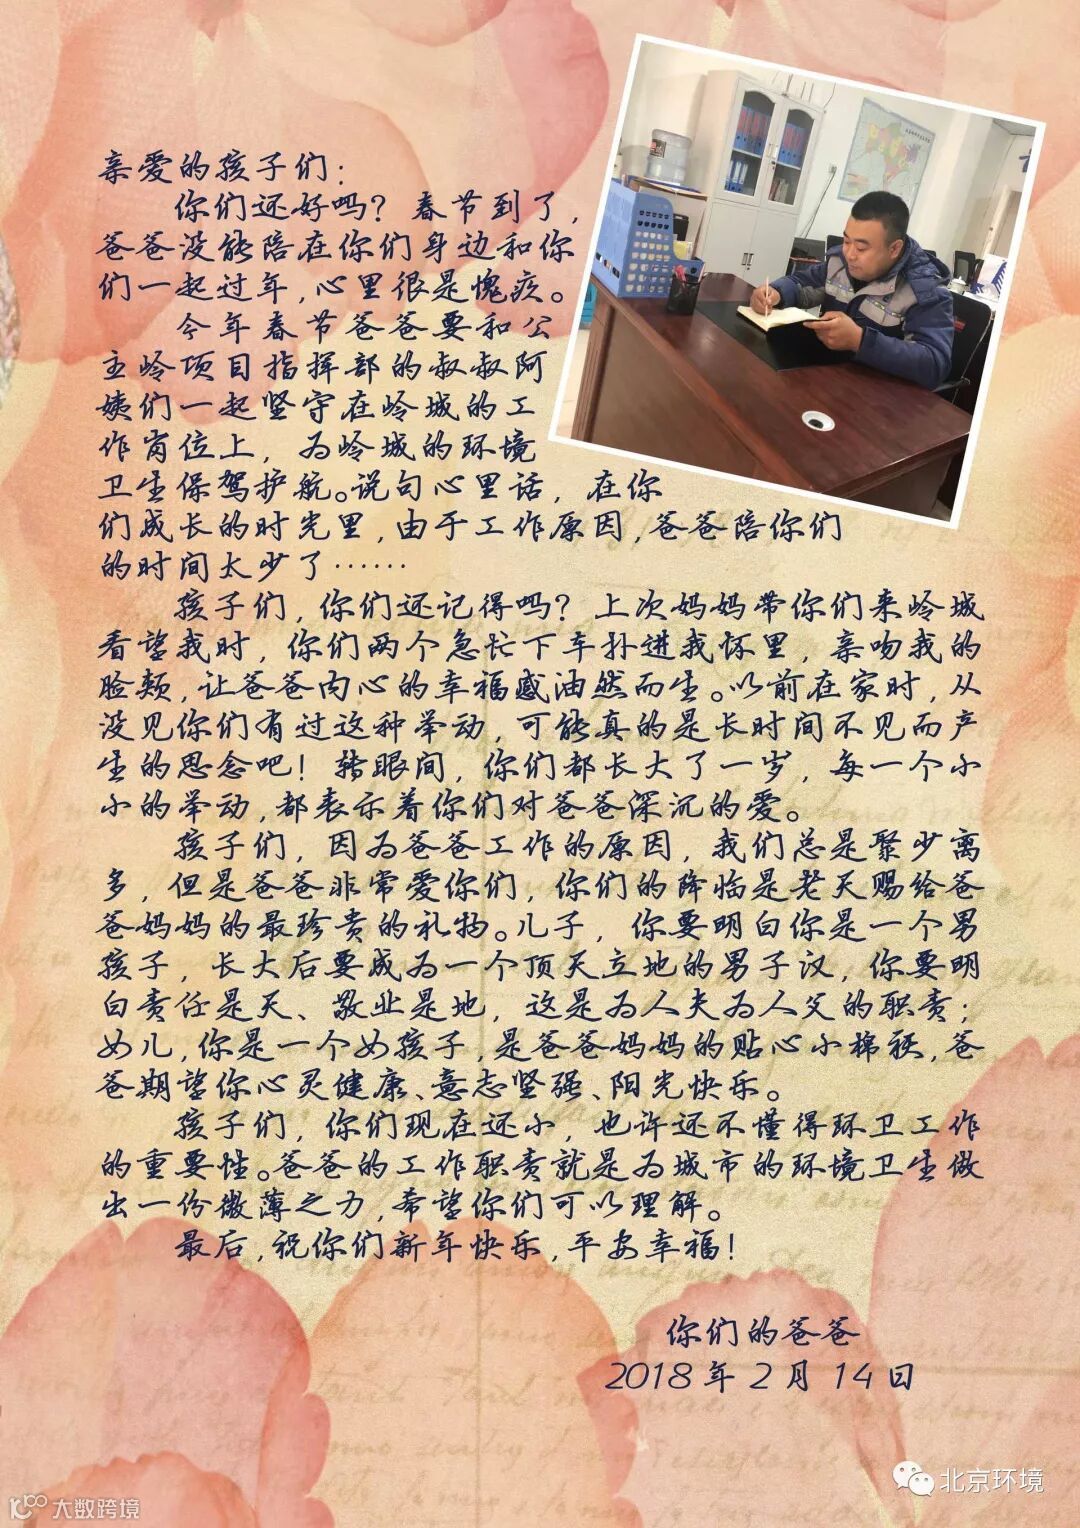 亲爱的孩子们：
你们还好吗？春节到了，
爸爸没能陪在你们身边和你
们一起过年，心里很是愧疚。
今年春节爸爸要和公
主岭项目指挥部的叔叔阿
姨们一起坚守在岭城的工
作岗位上，为岭城的环境
卫生保驾护航。说句心里话，在你
们成长的时光里，由于工作原因，爸爸陪你们
的时间太少了……
孩子们，你们还记得吗？上次妈妈带你们来岭城
看望我时，你们两个急忙下车扑进我怀里，亲吻我的
脸颊，让爸爸内心的幸福感油然而生。以前在家时，从
没见你们有过这种举动，可能真的是长时间不见而产
生的思念吧！转眼间，你们都长大了一岁，每一个小
小的举动，都表示着你们对爸爸深沉的爱。
孩子们，因为爸爸工作的原因，我们总是聚少离
多，但是爸爸非常爱你们，你们的降临是老天赐给爸
爸妈妈的最珍贵的礼物。儿子，你要明白你是一个男
孩子，长大后要成为一个顶天立地的男子汉，你要明
白责任是天、敬业是地，这是为人夫为人父的职责；
女儿，你是一个女孩子，是爸爸妈妈的贴心小棉袄，爸
爸期望你心灵健康、意志坚强、阳光快乐。
孩子们，你们现在还小，也许还不懂得环卫工作
的重要性。爸爸的工作职责就是为城市的环境卫生做
出一份微薄之力，希望你们可以理解。
最后，祝你们新年快乐，平安幸福！
你们的爸爸
2018年2月14日
北京环境
大数跨境